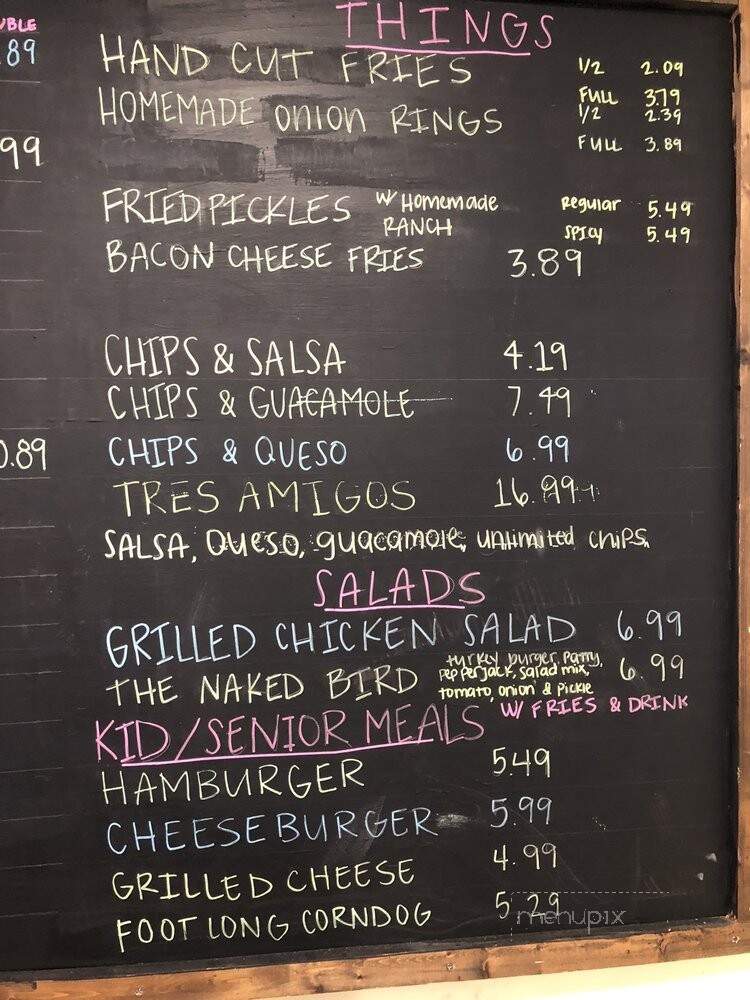 UBLE
.89
99
0.89
THINGS
HAND CUT FRIES 1/2 2.09
FULL 3.79
HOMEMADE ONION RINGS 1/2 2.39
FULL 3.89
FRIED PICKLES W/ Homemade RANCH Regular 5.49
SPICY 5.49
BACON CHEESE FRIES 3.89
CHIPS & SALSA 4.19
CHIPS & GUACAMOLE 7.49
CHIPS & QUESO 6.99
TRES AMIGOS 16.99
SALSA, Queso, guacamole, unlimited chips.
SALADS
GRILLED CHICKEN SALAD 6.99
THE NAKED BIRD turkey burger patty, pepperjack, salad mix, tomato, onion & pickle 6.99
KID/SENIOR MEALS W/ FRIES & DRINK
HAMBURGER 5.49
CHEESEBURGER 5.99
GRILLED CHEESE 4.99
FOOT LONG CORNDOG 5.29
menupix